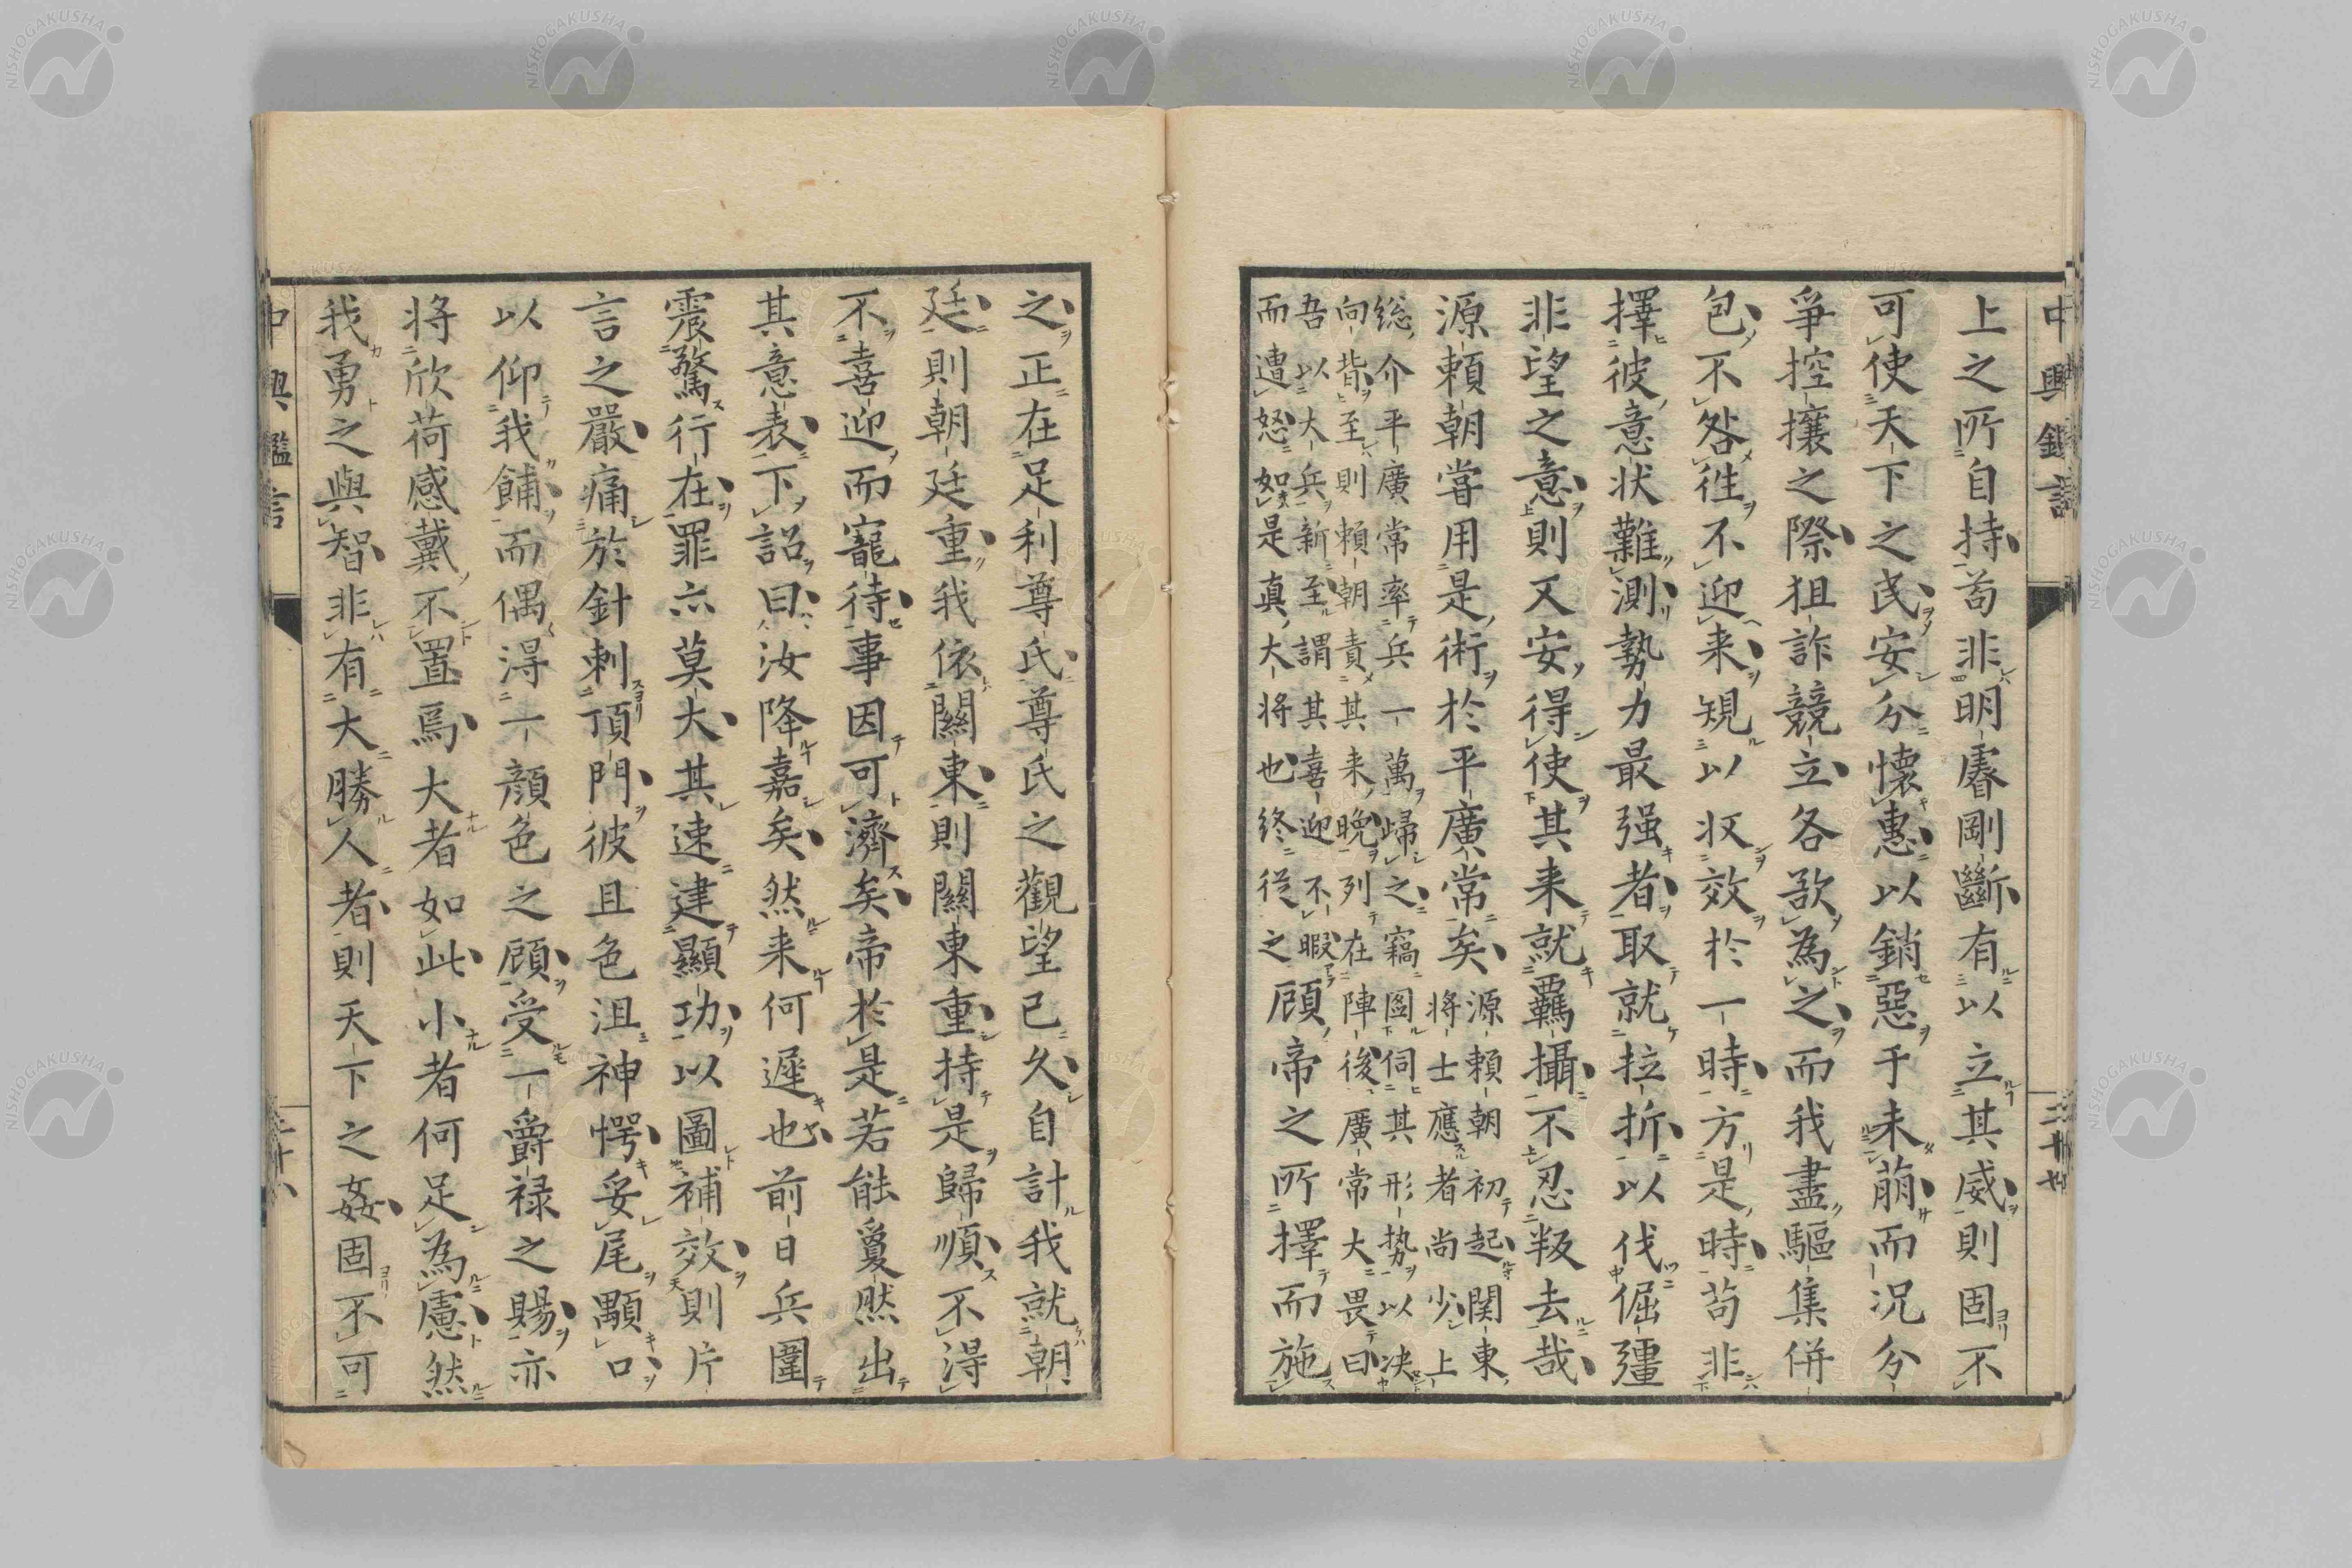 上之所自持苟非明睿剛斷有以立其威則固不
可使天下之民安分懷惠以銷惡于未萠而况分
爭控攘之際狙詐競立各欲為之而我盡驅集併
包不咎徃不迎来規以収效於一時方是時苟非
擇彼意状難測勢力最强者取就拉折以伐倔彊
非望之意則又安得使其来就羈攝不忍叛去哉
源頼朝嘗用是術於平廣常矣
源頼朝初起関東
将士應者尚少上
総介平廣常率兵一萬歸之竊圖伺其形势以决
向背至則頼朝責其来晩列在陣後廣常大畏曰
吾以大兵新至謂其喜迎不暇
而遭怒如是真大将也終従之
顧帝之所擇而施
之正在足利尊氏尊氏之觀望已久自計我就朝
廷則朝廷重我依關東則關東重持是歸順不得
不喜迎而寵待事因可濟矣帝於是若能夐然出
其意表下詔曰汝降嘉矣然来何遲也前日兵圍
震驚行在罪亦莫大其速建顯功以圖補效則片
言之嚴痛於針刺頂門彼且色沮神愕妥尾顒口
以仰我餔而偶得一顔色之顧受一爵禄之賜亦
将欣荷感戴不置焉大者如此小者何足為慮然
我勇之與智非有大勝人者則天下之姦固不可
中興鑑言
三十七
中興鑑言